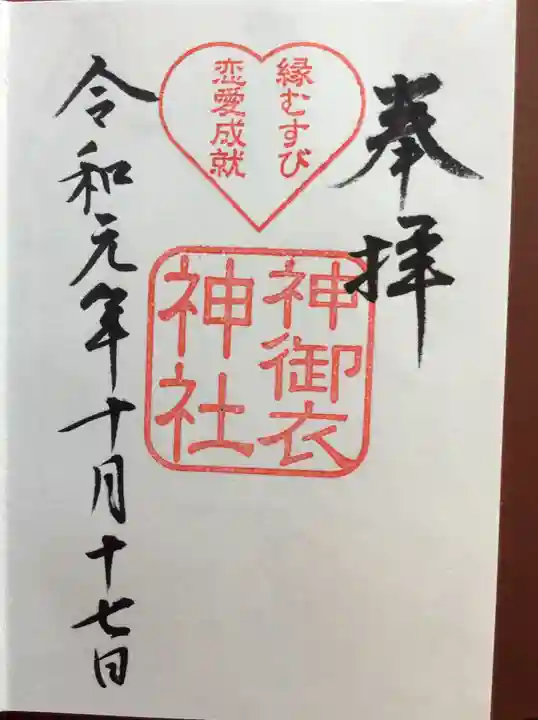 奉拝
縁むすび
恋愛成就
神御衣
神社
令和元年十月十七日